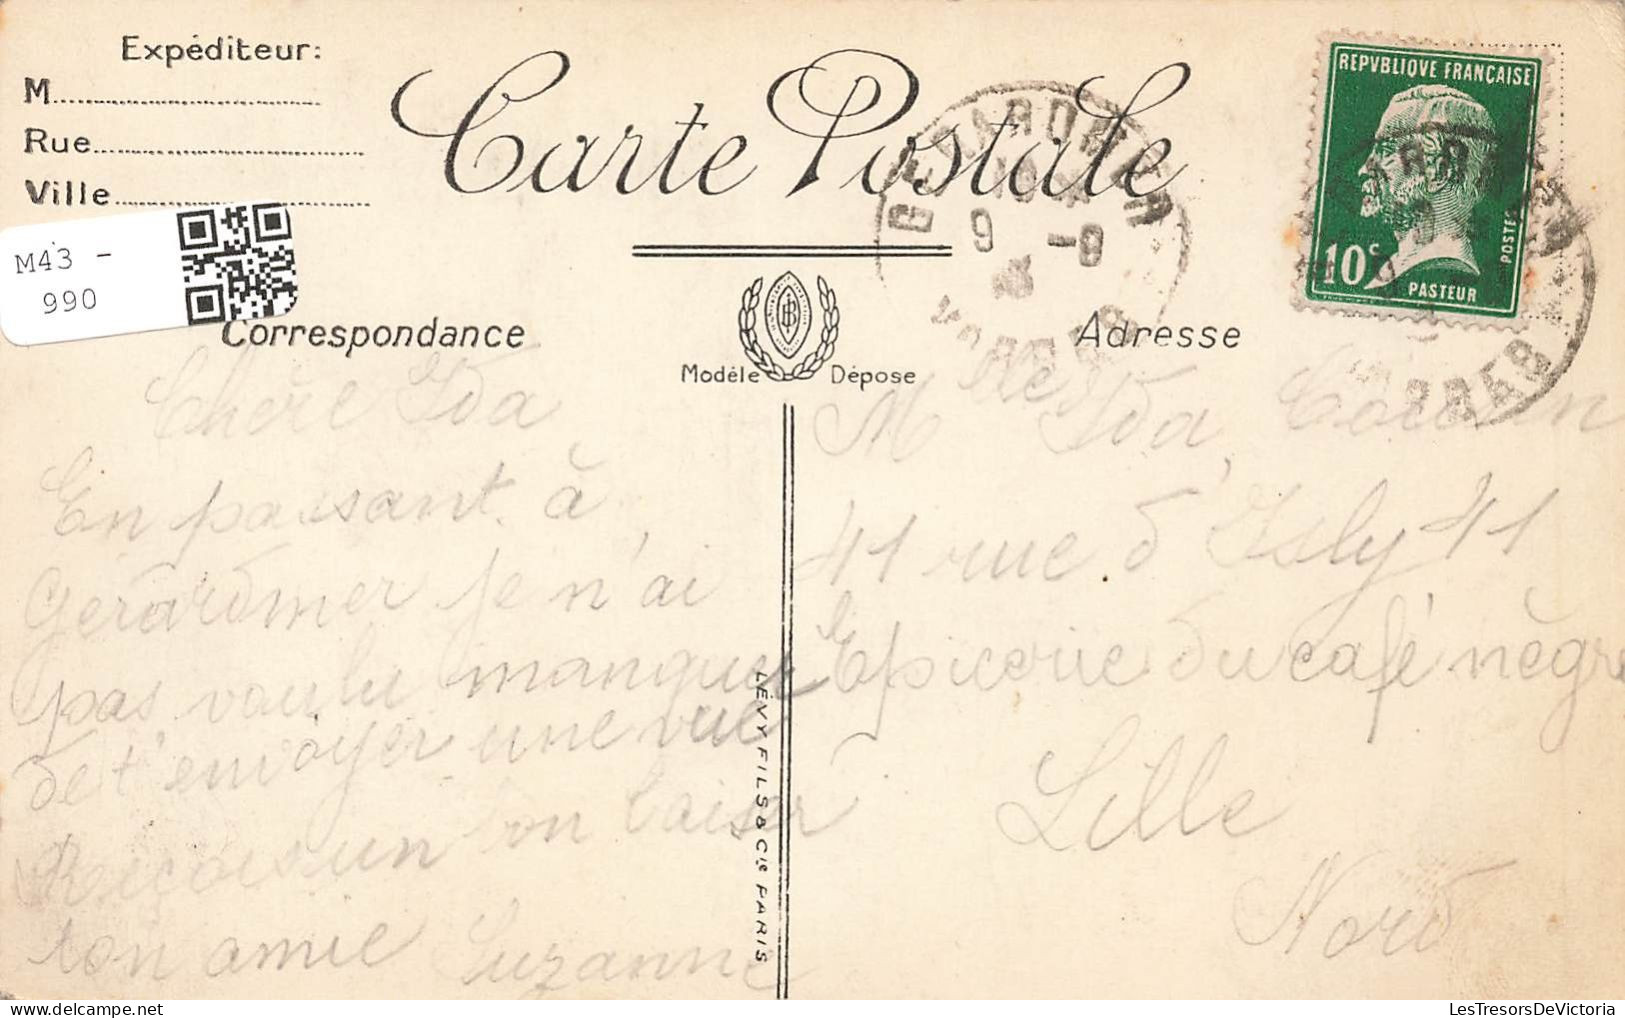 Expéditeur:
M
Rue
Ville
Carte Postale
REPVBLIQVE FRANÇAISE
10c
POSTES
PASTEUR
GERARDMER
9 -8
VOSGES
M43 -
990
Correspondance
Adresse
Modèle Dépose
LEVY FILS & Cie PARIS
Chère Ida
En passant à
Gérardmer je n'ai
pas voulu manquer
de t'envoyer une vue
Reçois un bon baiser
ton amie Suzanne
Mlle Ida
41 rue d'Isly 41
Epicerie du café nègre
Lille
Nord
LesTresorsDeVictoria